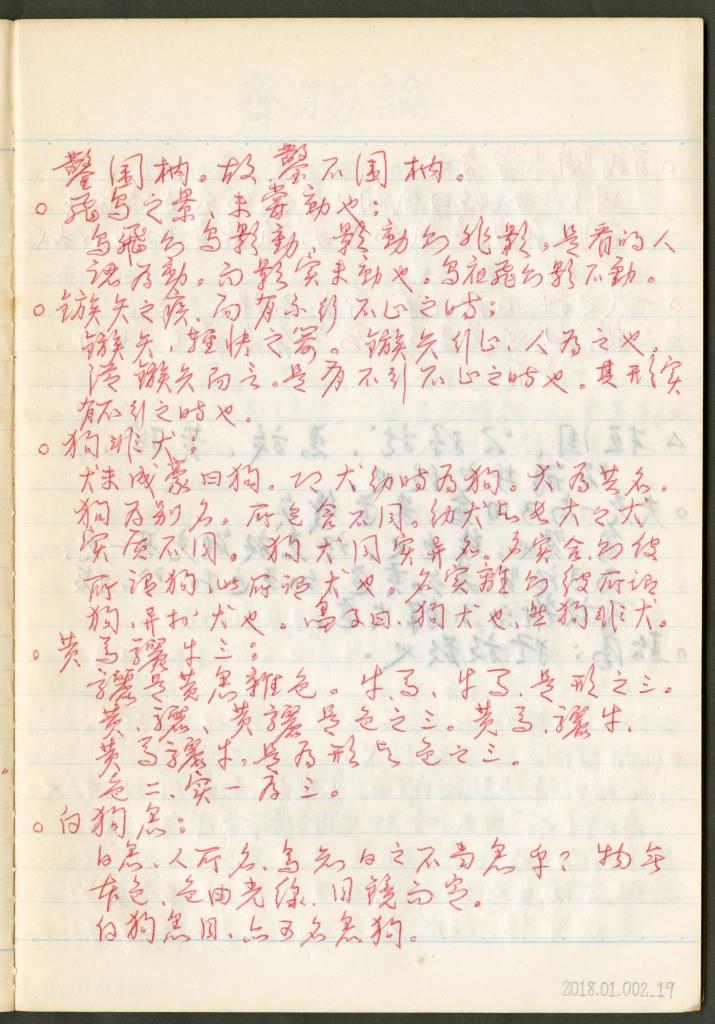 鑿圍枘。故鑿不圍枘。
。飛鳥之景、未嘗動也：
鳥飛則鳥影動、影動則非影。是看的人
認為動。而影實未動也。鳥雖飛則影不動。
。鏃矢之疾、而有不行不止之時：
鏃矢、輕快之器。鏃矢行止、人為之也。
清鏃矢而言。是有不行不止之時也。其形實
有不行之時也。
。狗非犬：
犬未成豪曰狗。功犬幼時為狗。犬為共名。
狗為別名。所包含不同。幼犬比老大之犬
實質不同。狗犬同實異名。名實合則彼
所謂狗、此所謂犬也。名實離則彼所謂
狗、異於犬也。墨子曰、狗犬也、然狗非犬。
。黃馬驪牛三：
驪是黃黑雜色。牛、馬、牛馬、是形之三。
黃、驪、黃驪是色之三。黃馬、驪牛、
黃馬驪牛、是為形與色之三。
色二、實一為三。
。白狗黑：
白黑、人所名、焉知白之不當黑乎？物無
本色、色由光線、目鏡而定。
白狗黑目、亦可名黑狗。
2018.01.002_19